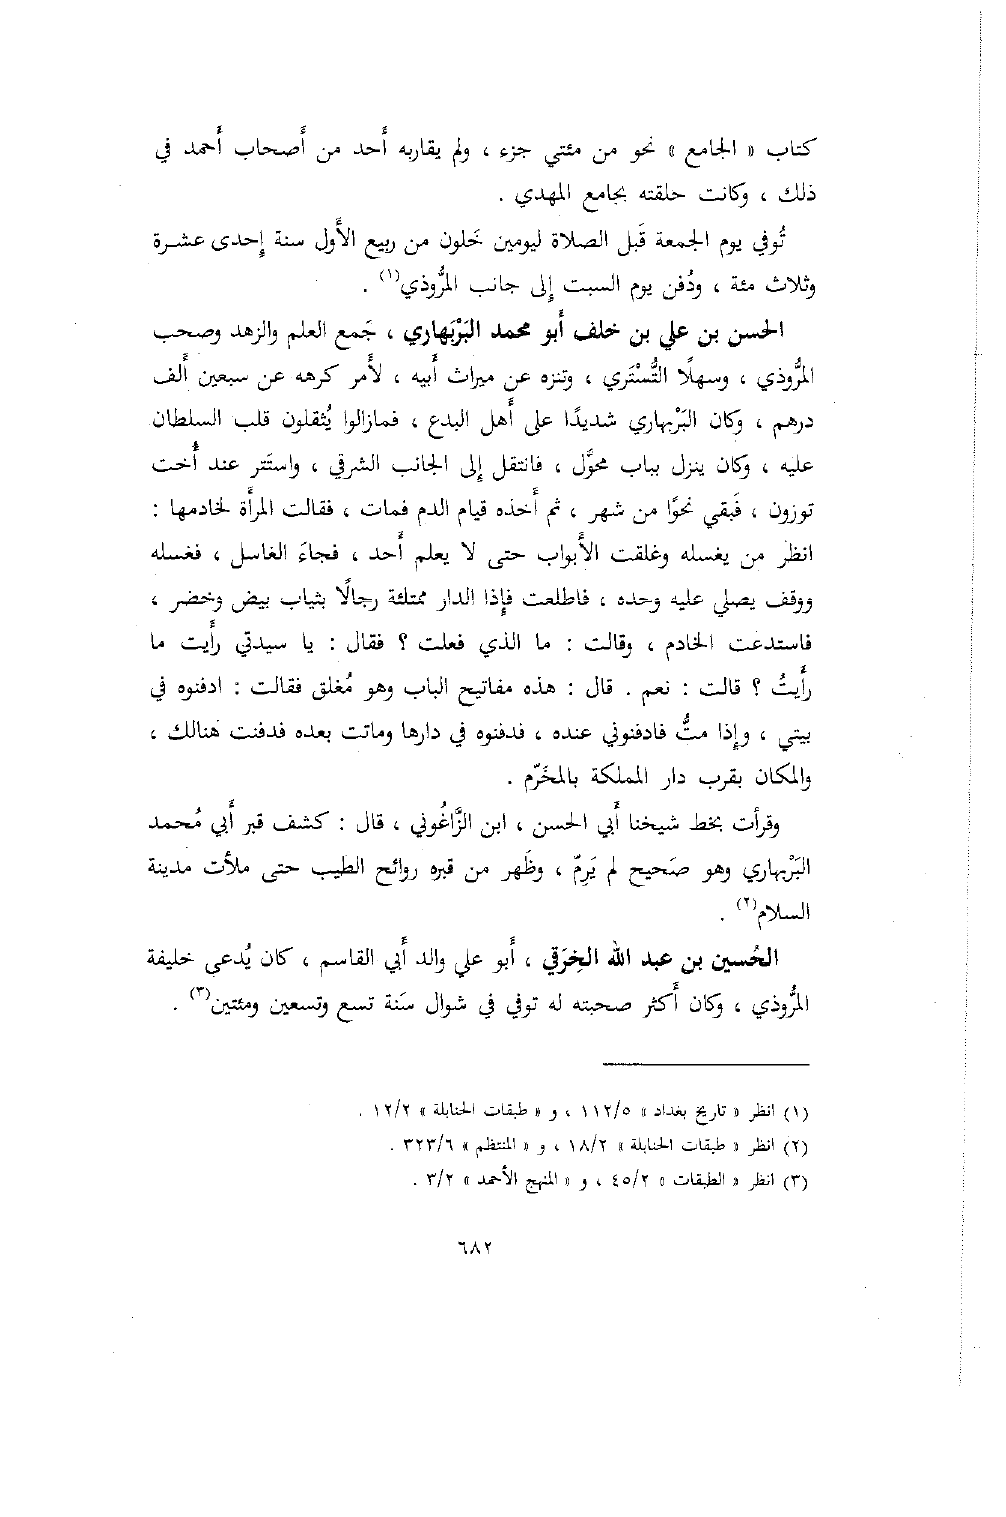 كتاب « الجامع » نحو من مئتي جزء ، ولم يقاربه أَحد من أَصحاب أَحمد في
ذلك ، وكانت حلقته بجامع المهدي .
تُوفي يوم الجمعة قَبل الصلاة ليومين خَلون من ربيع الأَول سنة إِحدى عشرة
وثلاث مئة ، ودُفن يوم السبت إِلى جانب المرُّوذي(١) .
الحسن بن علي بن خلف أَبو محمد البَرْبَهاري ، جَمع العلم والزهد وصحب
المرُّوذي ، وسهلًا التُّسْتَري ، وتنزه عن ميراث أَبيه ، لأَمر كرهه عن سبعين أَلف
درهم ، وكان البَرْبهاري شديدًا على أَهل البدع ، فمازالوا يُثقلون قلب السلطان
عليه ، وكان ينزل بباب محوَّل ، فانتقل إِلى الجانب الشرقي ، واستَتر عند أُخت
توزون ، فَبقي نحوًا من شهر ، ثم أَخذه قيام الدم فمات ، فقالت المرأَة لخادمها :
انظر من يغسله وغلقت الأَبواب حتى لا يعلم أَحد ، فجاءَ الغاسل ، فغسله
ووقف يصلي عليه وحده ، فاطلعت فإِذا الدار ممتلئة رجالًا بثياب بيض وخضر ،
فاستدعت الخادم ، وقالت : ما الذي فعلت ؟ فقال : يا سيدتي رأَيت ما
رأَيتُ ؟ قالت : نعم . قال : هذه مفاتيح الباب وهو مُغلق فقالت : ادفنوه في
بيتي ، وإِذا متُّ فادفنوني عنده ، فدفنوه في دارها وماتت بعده فدفنت هنالك ،
والمكان بقرب دار المملكة بالمخَرّم .
وقرأت بخط شيخنا أَبي الحسن ، ابن الزَّاغُوني ، قال : كشف قبر أَبي مُحمد
البَرْبهاري وهو صَحيح لم يَرِمّ ، وظَهر من قبره روائح الطيب حتى ملأت مدينة
السلام(٢) .
الحُسين بن عبد الله الخِرَقي ، أَبو علي والد أَبي القاسم ، كان يُدعى خليفة
المرُّوذي ، وكان أَكثر صحبته له توفي في شوال سَنة تسع وتسعين ومئتين(٣) .
(١) انظر « تاريخ بغداد » ١١٢/٥ ، و « طبقات الحنابلة » ١٢/٢ .
(٢) انظر « طبقات الحنابلة » ١٨/٢ ، و « المنتظم » ٣٢٣/٦ .
(٣) انظر « الطبقات » ٤٥/٢ ، و « المنهج الأحمد » ٣/٢ .
٦٨٢